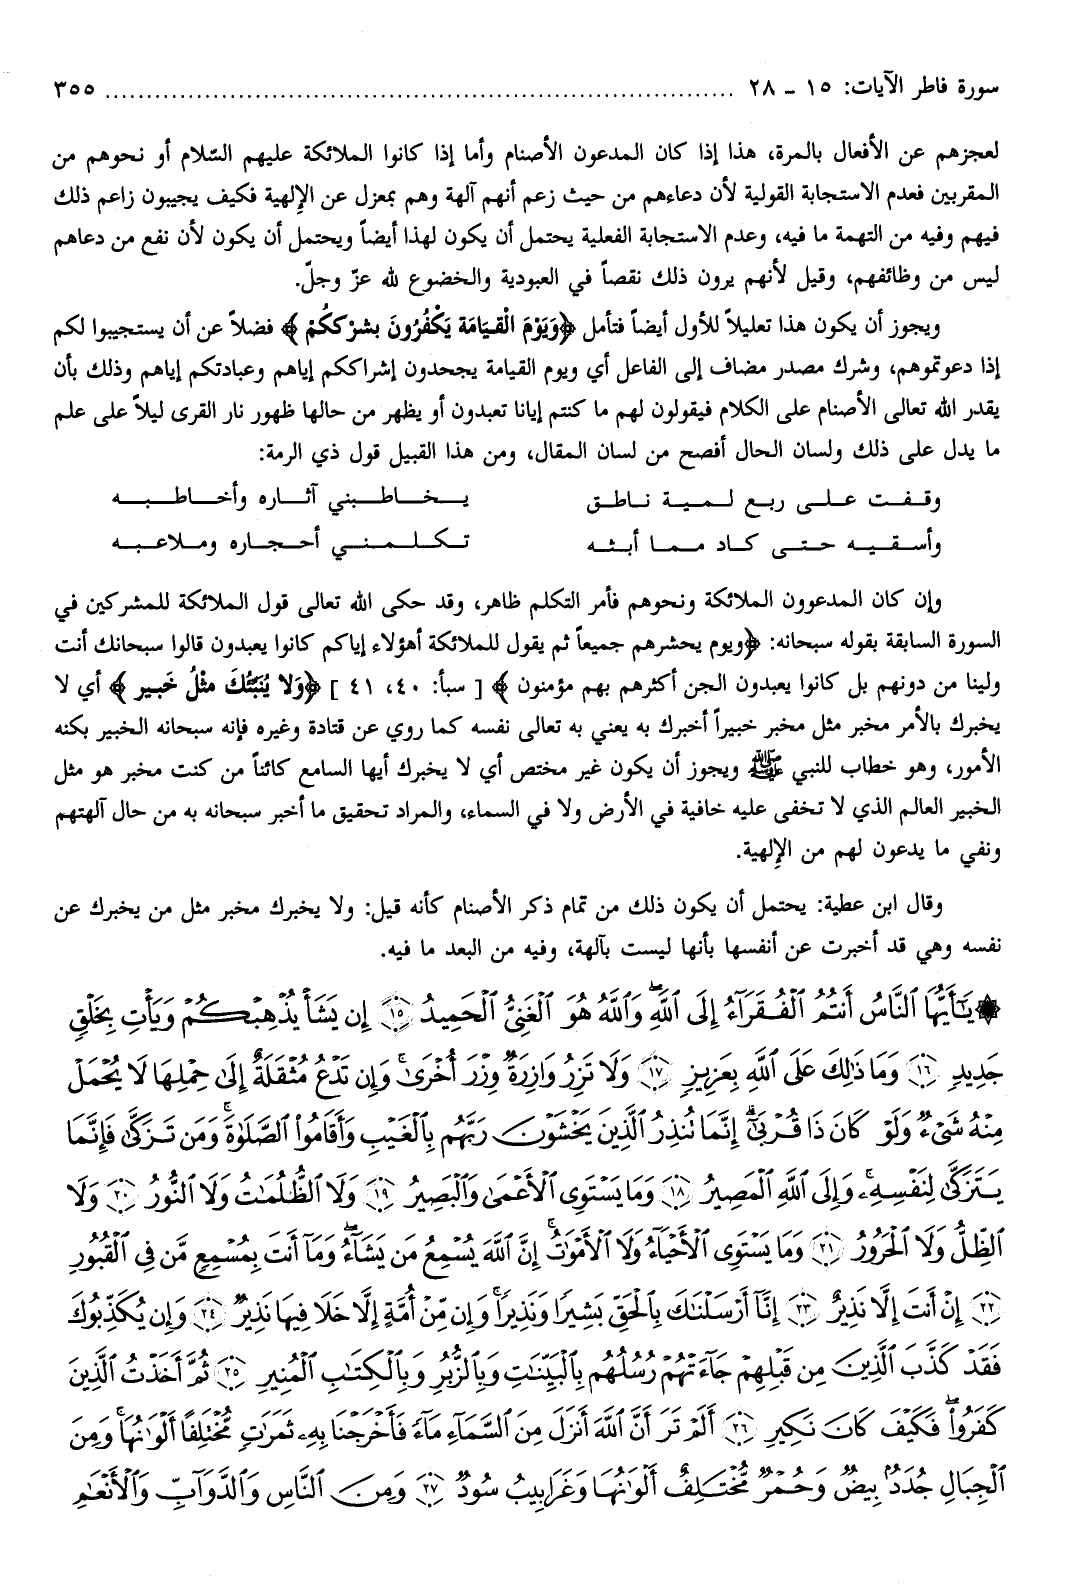 سورة فاطر الآيات: ١٥ ـ ٢٨ ............................................................ ٣٥٥
لعجزهم عن الأفعال بالمرة، هذا إذا كان المدعون الأصنام وأما إذا كانوا الملائكة عليهم السّلام أو نحوهم من
المقربين فعدم الاستجابة القولية لأن دعاءهم من حيث زعم أنهم آلهة وهم بمعزل عن الإلهية فكيف يجيبون زاعم ذلك
فيهم وفيه من التهمة ما فيه، وعدم الاستجابة الفعلية يحتمل أن يكون لهذا أيضاً ويحتمل أن يكون لأن نفع من دعاهم
ليس من وظائفهم، وقيل لأنهم يرون ذلك نقصاً في العبودية والخضوع لله عزّ وجلّ.
ويجوز أن يكون هذا تعليلاً للأول أيضاً فتأمل ﴿وَيَوْمَ الْقِيَامَةِ يَكْفُرُونَ بِشِرْكِكُمْ﴾ فضلاً عن أن يستجيبوا لكم
إذا دعوتموهم، وشرك مصدر مضاف إلى الفاعل أي ويوم القيامة يجحدون إشراككم إياهم وعبادتكم إياهم وذلك بأن
يقدر الله تعالى الأصنام على الكلام فيقولون لهم ما كنتم إيانا تعبدون أو يظهر من حالها ظهور نار القرى ليلاً على علم
ما يدل على ذلك ولسان الحال أفصح من لسان المقال، ومن هذا القبيل قول ذي الرمة:
وقفت على ربع لمية ناطق يخاطبني آثاره وأخاطبه
وأسقيه حتى كاد مما أبثه تكلمني أحجاره وملاعبه
وإن كان المدعوون الملائكة ونحوهم فأمر التكلم ظاهر، وقد حكى الله تعالى قول الملائكة للمشركين في
السورة السابقة بقوله سبحانه: ﴿ويوم يحشرهم جميعاً ثم يقول للملائكة أهؤلاء إياكم كانوا يعبدون قالوا سبحانك أنت
ولينا من دونهم بل كانوا يعبدون الجن أكثرهم بهم مؤمنون﴾ [سبأ: ٤٠، ٤١] ﴿وَلا يُنَبِّئُكَ مِثْلُ خَبِيرٍ﴾ أي لا
يخبرك بالأمر مخبر مثل مخبر خبيراً أخبرك به يعني به تعالى نفسه كما روي عن قتادة وغيره فإنه سبحانه الخبير بكنه
الأمور، وهو خطاب للنبي ﷺ ويجوز أن يكون غير مختص أي لا يخبرك أيها السامع كائناً من كنت مخبر هو مثل
الخبير العالم الذي لا تخفى عليه خافية في الأرض ولا في السماء، والمراد تحقيق ما أخبر سبحانه به من حال آلهتهم
ونفي ما يدعون لهم من الإلهية.
وقال ابن عطية: يحتمل أن يكون ذلك من تمام ذكر الأصنام كأنه قيل: ولا يخبرك مخبر مثل من يخبرك عن
نفسه وهي قد أخبرت عن أنفسها بأنها ليست بآلهة، وفيه من البعد ما فيه.
۞ يَٰٓأَيُّهَا ٱلنَّاسُ أَنتُمُ ٱلْفُقَرَآءُ إِلَى ٱللَّهِ ۖ وَٱللَّهُ هُوَ ٱلْغَنِىُّ ٱلْحَمِيدُ ١٥ إِن يَشَأْ يُذْهِبْكُمْ وَيَأْتِ بِخَلْقٍ
جَدِيدٍ ١٦ وَمَا ذَٰلِكَ عَلَى ٱللَّهِ بِعَزِيزٍ ١٧ وَلَا تَزِرُ وَازِرَةٌ وِزْرَ أُخْرَىٰ ۚ وَإِن تَدْعُ مُثْقَلَةٌ إِلَىٰ حِمْلِهَا لَا يُحْمَلْ
مِنْهُ شَىْءٌ وَلَوْ كَانَ ذَا قُرْبَىٰٓ ۗ إِنَّمَا تُنذِرُ ٱلَّذِينَ يَخْشَوْنَ رَبَّهُم بِٱلْغَيْبِ وَأَقَامُوا۟ ٱلصَّلَوٰةَ ۚ وَمَن تَزَكَّىٰ فَإِنَّمَا
يَتَزَكَّىٰ لِنَفْسِهِۦ ۚ وَإِلَى ٱللَّهِ ٱلْمَصِيرُ ١٨ وَمَا يَسْتَوِى ٱلْأَعْمَىٰ وَٱلْبَصِيرُ ١٩ وَلَا ٱلظُّلُمَٰتُ وَلَا ٱلنُّورُ ٢٠ وَلَا
ٱلظِّلُّ وَلَا ٱلْحَرُورُ ٢١ وَمَا يَسْتَوِى ٱلْأَحْيَآءُ وَلَا ٱلْأَمْوَٰتُ ۚ إِنَّ ٱللَّهَ يُسْمِعُ مَن يَشَآءُ ۖ وَمَآ أَنتَ بِمُسْمِعٍ مَّن فِى ٱلْقُبُورِ
٢٢ إِنْ أَنتَ إِلَّا نَذِيرٌ ٢٣ إِنَّآ أَرْسَلْنَٰكَ بِٱلْحَقِّ بَشِيرًا وَنَذِيرًا ۚ وَإِن مِّنْ أُمَّةٍ إِلَّا خَلَا فِيهَا نَذِيرٌ ٢٤ وَإِن يُكَذِّبُوكَ
فَقَدْ كَذَّبَ ٱلَّذِينَ مِن قَبْلِهِمْ جَآءَتْهُمْ رُسُلُهُم بِٱلْبَيِّنَٰتِ وَبِٱلزُّبُرِ وَبِٱلْكِتَٰبِ ٱلْمُنِيرِ ٢٥ ثُمَّ أَخَذْتُ ٱلَّذِينَ
كَفَرُوا۟ ۖ فَكَيْفَ كَانَ نَكِيرِ ٢٦ أَلَمْ تَرَ أَنَّ ٱللَّهَ أَنزَلَ مِنَ ٱلسَّمَآءِ مَآءً فَأَخْرَجْنَا بِهِۦ ثَمَرَٰتٍ مُّخْتَلِفًا أَلْوَٰنُهَا ۚ وَمِنَ
ٱلْجِبَالِ جُدَدٌۢ بِيضٌ وَحُمْرٌ مُّخْتَلِفٌ أَلْوَٰنُهَا وَغَرَابِيبُ سُودٌ ٢٧ وَمِنَ ٱلنَّاسِ وَٱلدَّوَآبِّ وَٱلْأَنْعَٰمِ